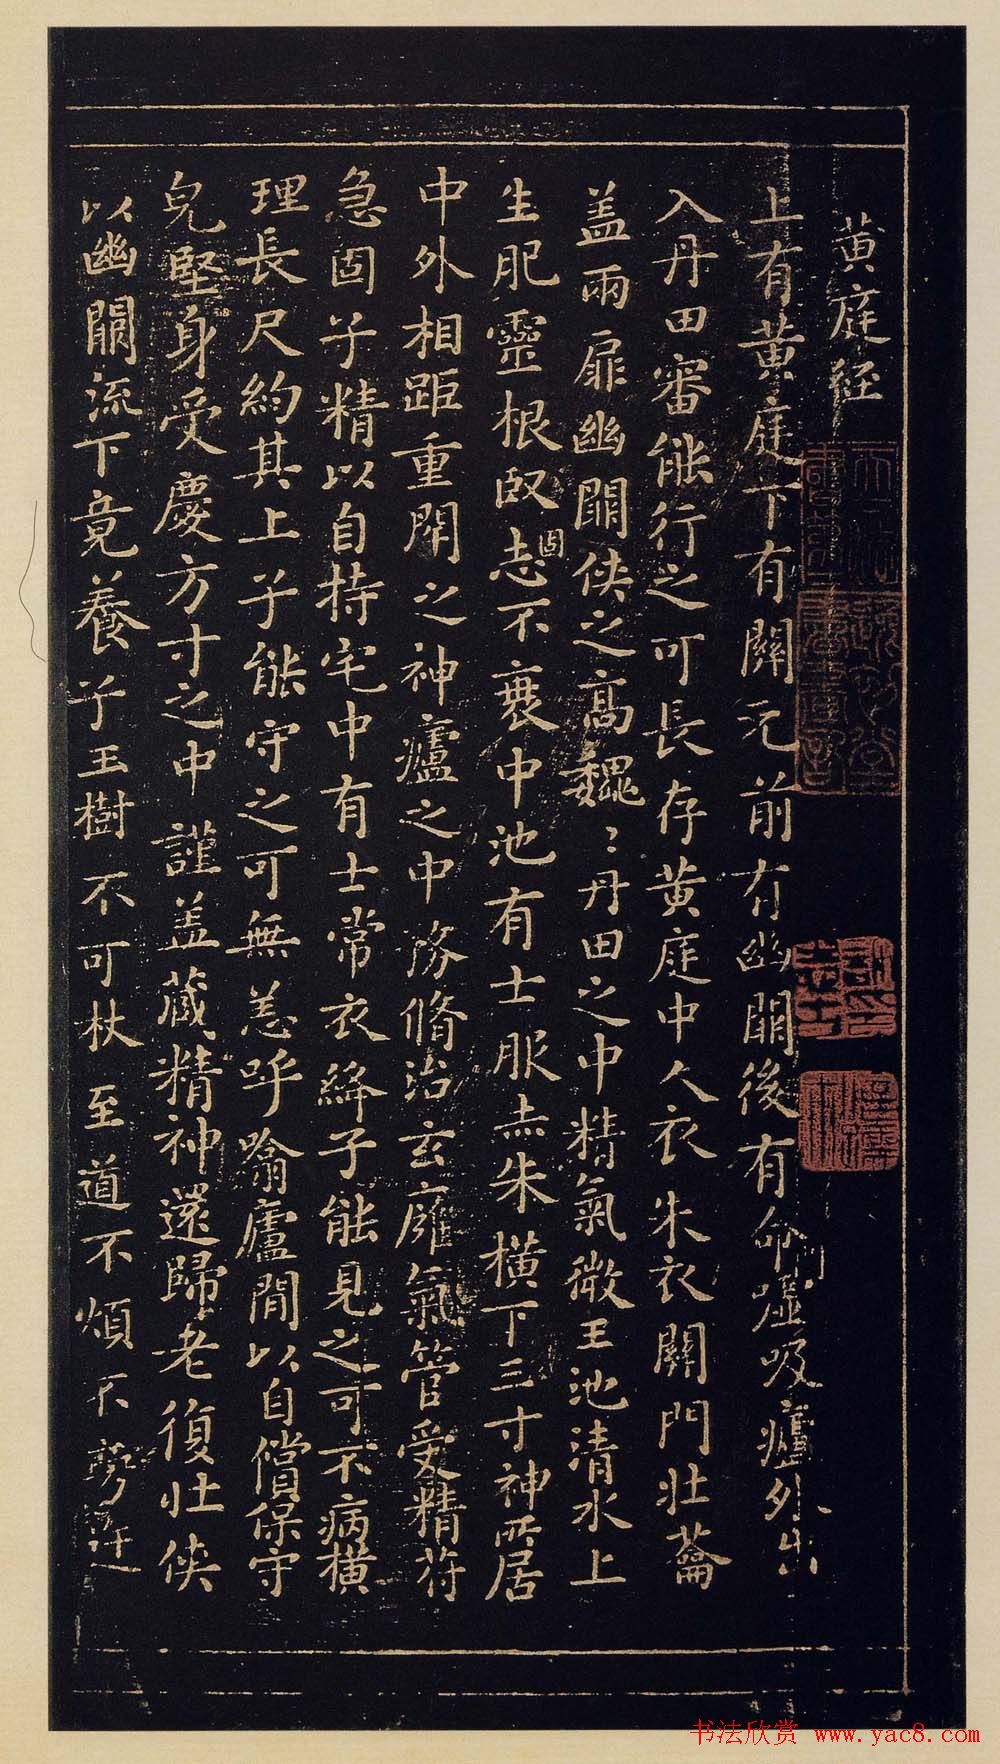 黄庭经
上有黄庭下有關元前有幽闕後有命嘘吸廬外出
入丹田審能行之可長存黄庭中人衣朱衣關門壯蘥
盖兩扉幽闕侠之高巍〻丹田之中精氣微玉池清水上
生肥靈根堅固志不衰中池有士服赤朱横下三寸神所居
中外相距重閉之神廬之中務脩治玄廱氣管受精符
急固子精以自持宅中有士常衣絳子能見之可不病横
理長尺約其上子能守之可無恙呼噏廬間以自償保守
皃堅身受慶方寸之中謹盖藏精神還歸老復壮侠
以幽闕流下竟養子玉樹不可杖至道不煩不旁迕
书法欣赏 www.yac8.com